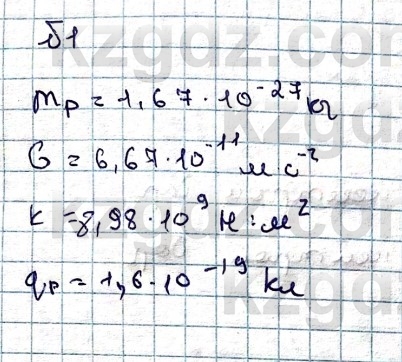 Б1
mp = 1,67 · 10⁻²⁷ кг
G = 6,67 · 10⁻¹¹ м с⁻²
k = 8,98 · 10⁹ Н : м²
qp = 1,6 · 10⁻¹⁹ Кл